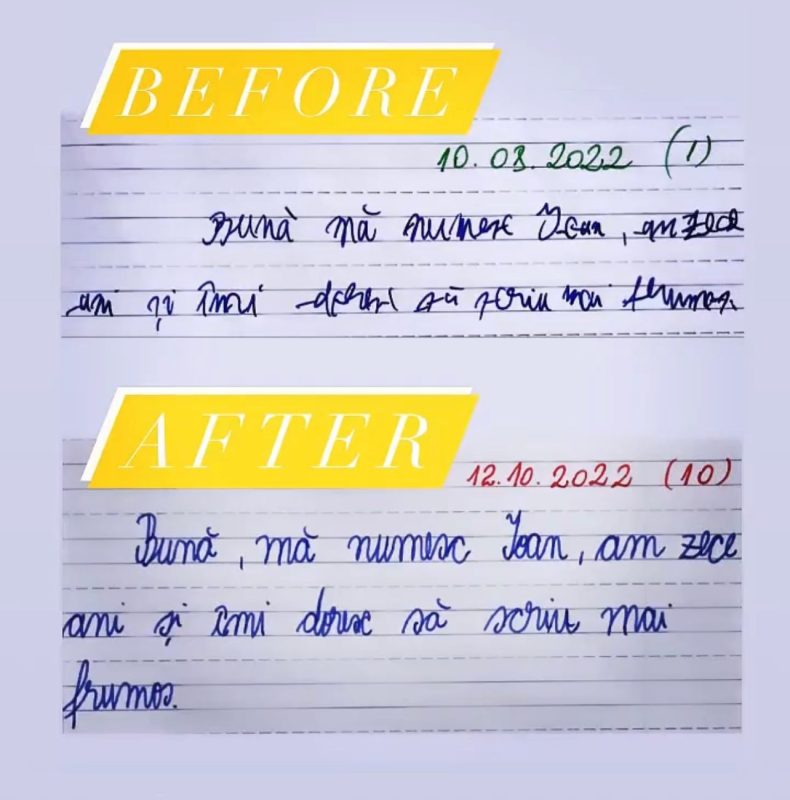 BEFORE
10.03.2022 (1)
Bună mă numesc Ioan, am zece
ani și îmi doresc să scriu mai frumos.
AFTER
12.10.2022 (10)
Bună, mă numesc Ioan, am zece
ani și îmi doresc să scriu mai
frumos.